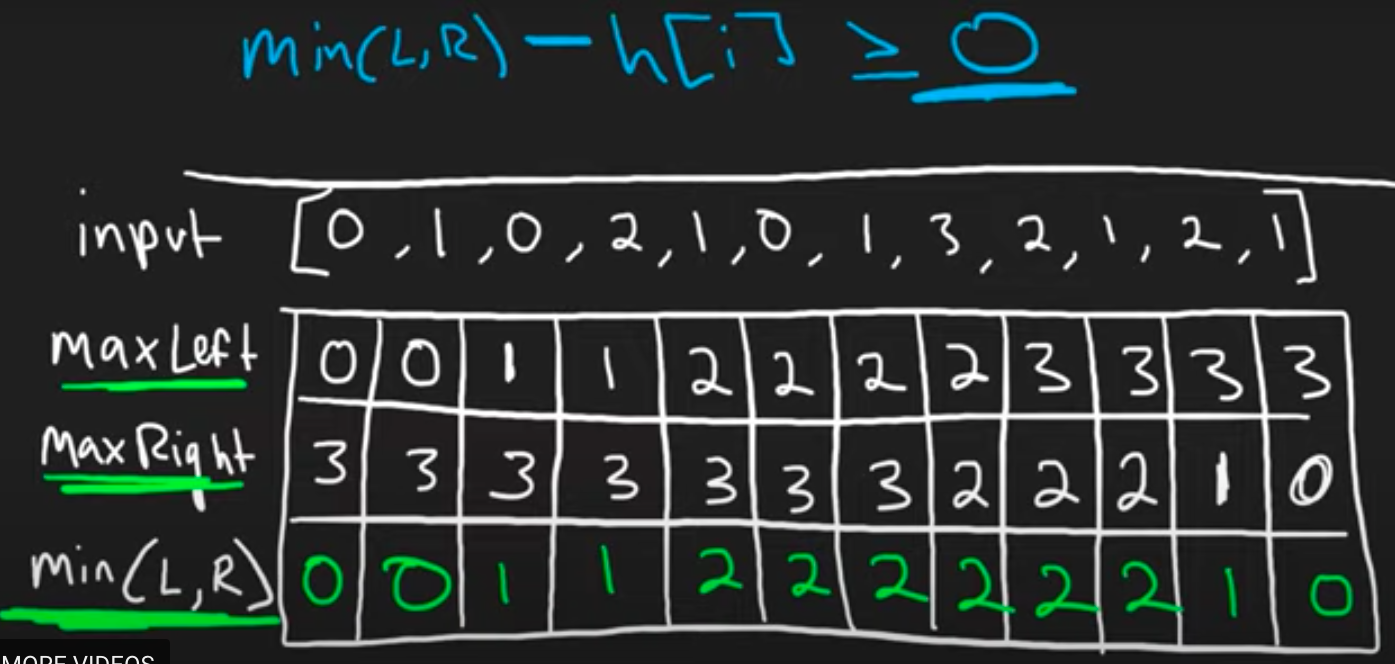 min(L,R) - h[i] ≥ 0
input [0,1,0,2,1,0,1,3,2,1,2,1]
maxLeft 0 0 1 1 2 2 2 2 3 3 3 3
MaxRight 3 3 3 3 3 3 3 2 2 2 1 0
min(L,R) 0 0 1 1 2 2 2 2 2 2 1 0
MORE VIDEOS